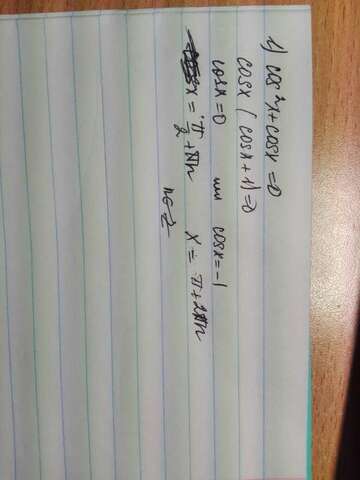 1) cos²x+cosx=0
cosx (cosx+1)=0
cosx=0 или cosx=-1
x=π/2+πn x=π+2πn
n∈Z